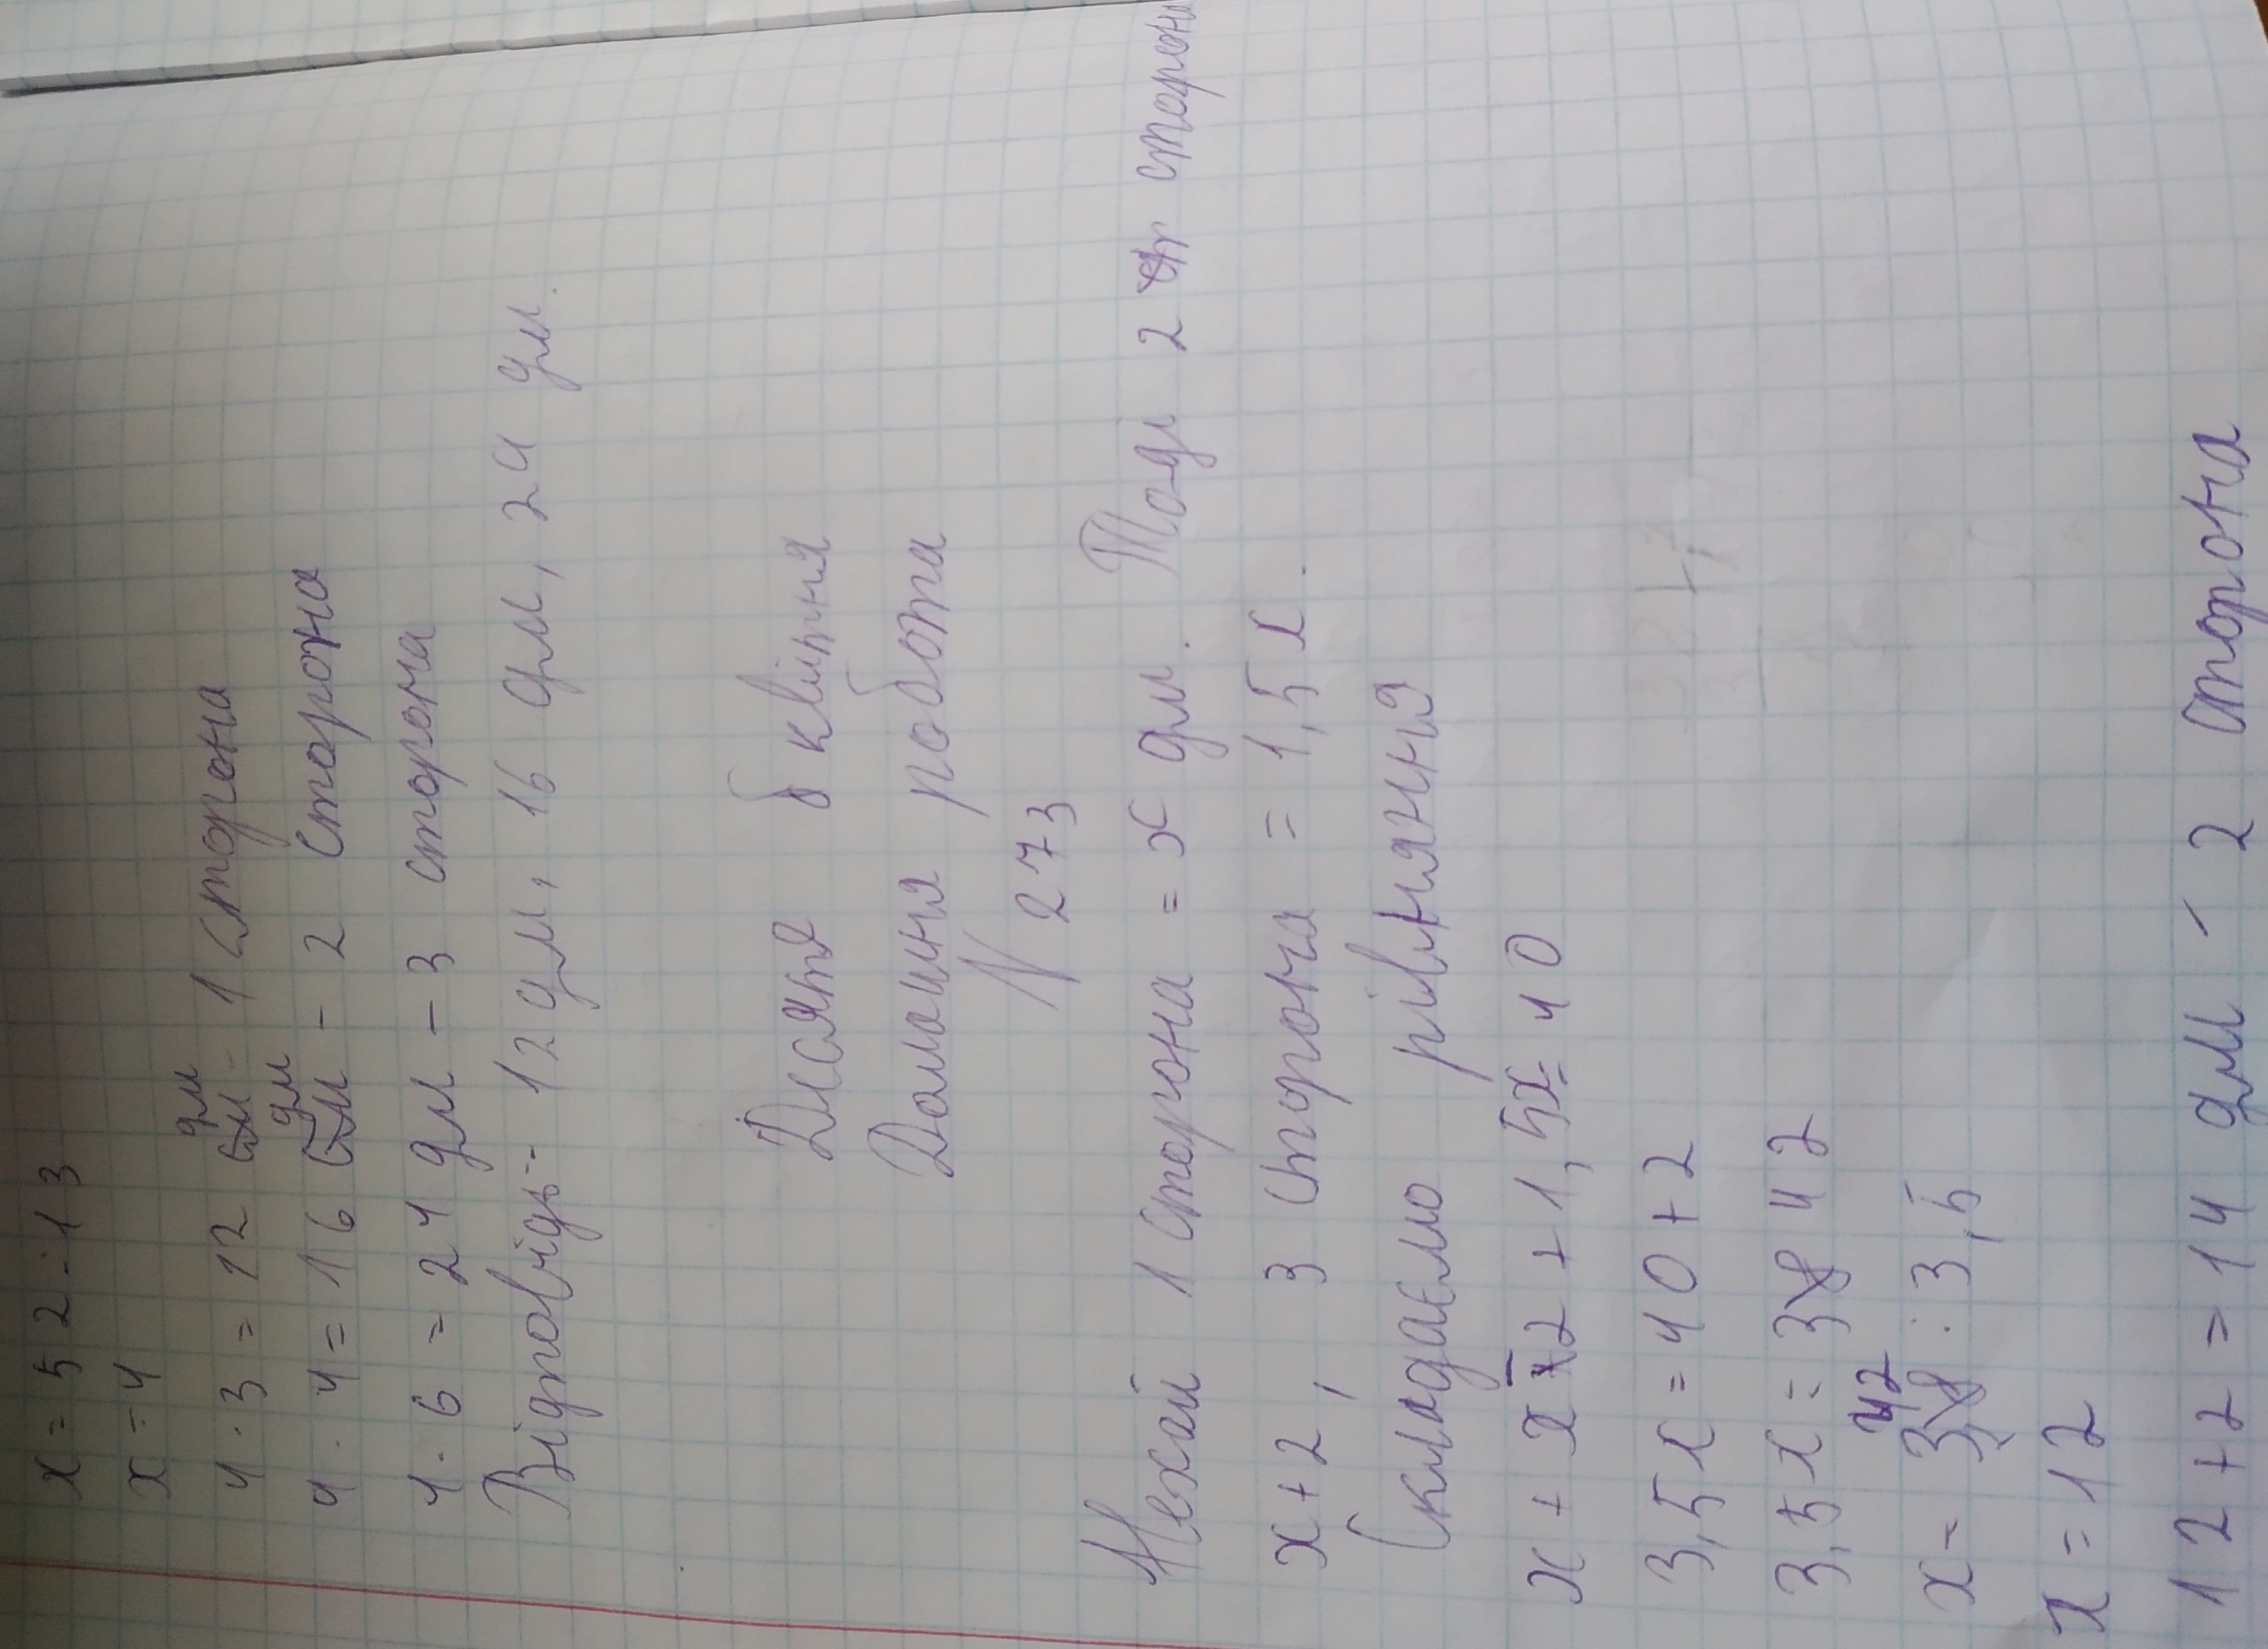 x = 52 : 13
x = 4
4 · 3 = 12 дм - 1 сторона
4 · 4 = 16 дм - 2 сторона
4 · 6 = 24 дм - 3 сторона
Відповідь - 12 дм, 16 дм, 24 дм.
Десяте квітня
Домашня робота
N 273
Нехай 1 сторона = x дм. Тоді 2 сторона
x + 2, 3 сторона = 1,5 x.
Складаємо рівняння
x + x - 2 + 1,5x = 40
3,5 x = 40 + 2
3,5 x = 42
x = 42 : 3,5
x = 12
12 + 2 = 14 дм - 2 сторона